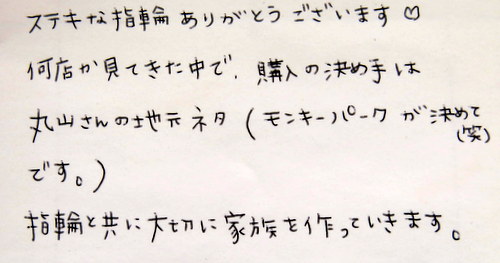 ステキな指輪ありがとうございます♡
何店か見てきた中で、購入の決め手は
丸山さんの地元ネタ(モンキーパークが決めて
(笑)
です。)
指輪と共に大切に家族を作っていきます。